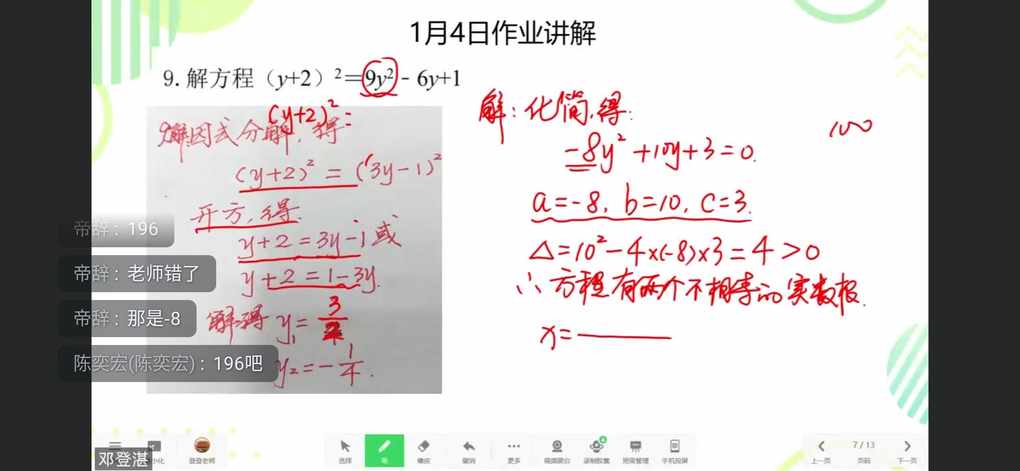 1月4日作业讲解
9. 解方程（y+2）²=9y²- 6y+1
(y+2)²=
解因式分解，得
(y+2)² = (3y-1)²
开方，得
y+2=3y-1或
y+2=1-3y
解得 y₁= 3/2
y₂=-1/4.
解：化简，得：
-8y²+10y+3=0.
a=-8, b=10, c=3.
△=10²-4×(-8)×3=4>0
∴方程有两个不相等的实数根.
x=
100
帝辞：196
帝辞：老师错了
帝辞：那是-8
陈奕宏(陈奕宏)：196吧
邓登湛
登登老师
选择
笔
橡皮
撤消
更多
手机投屏
上一页
7 / 13
页码
下一页